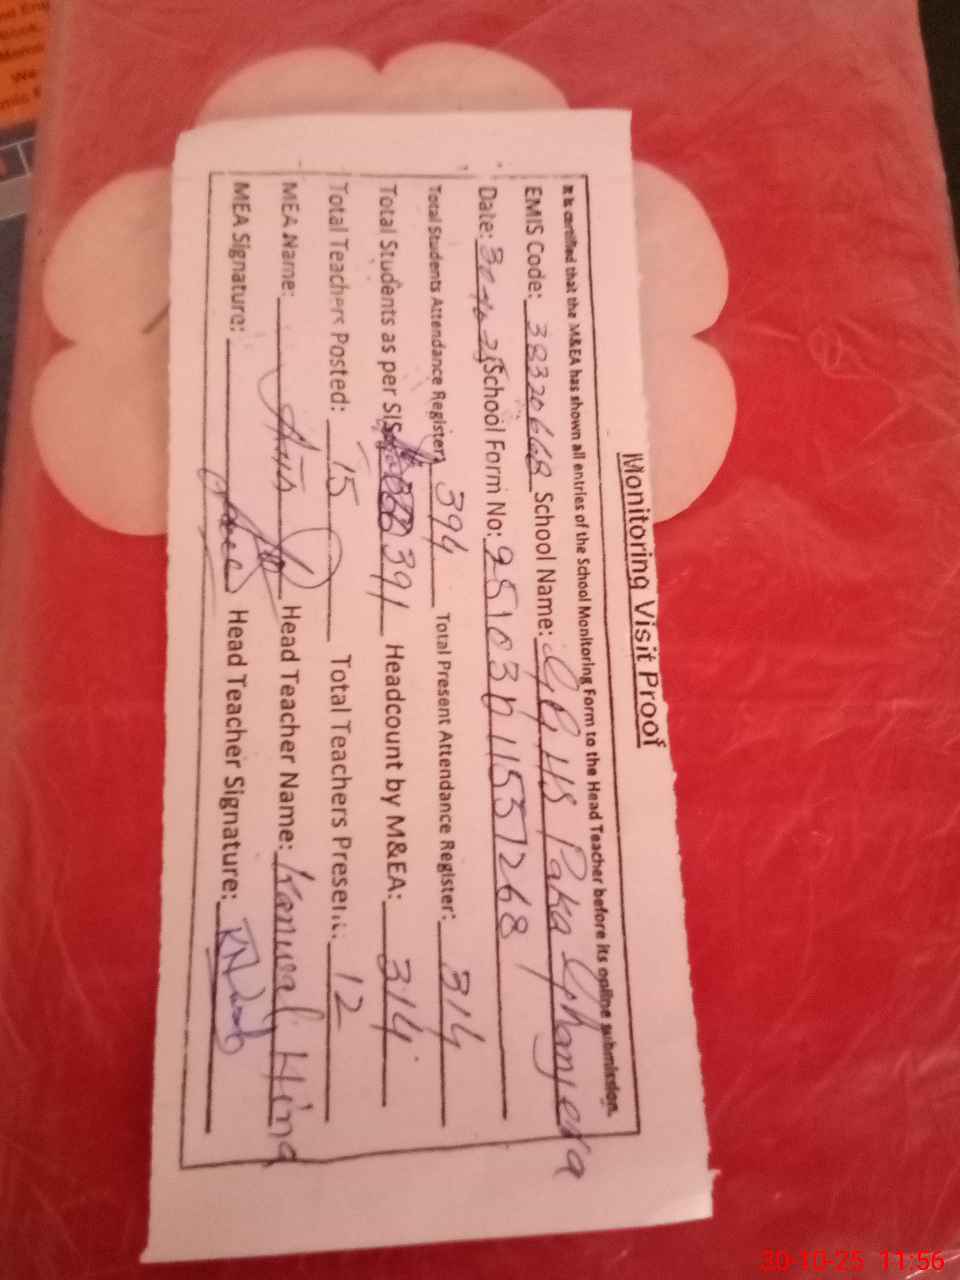 Monitoring Visit Proof
It is certified that the M&EA has shown all entries of the School Monitoring Form to the Head Teacher before its online submission.
EMIS Code: 38320668 School Name: GGHS Paka Ghanjera
Date: 30-10-25 School Form No: 2510301157268
Total Students Attendance Register: 394 Total Present Attendance Register: 314
Total Students as per SIS 391 Headcount by M&EA: 314
Total Teachers Posted: 15 Total Teachers Present: 12
MEA Name: Head Teacher Name: Kanwal Hina
MEA Signature: Head Teacher Signature:
30-10-25 11:56